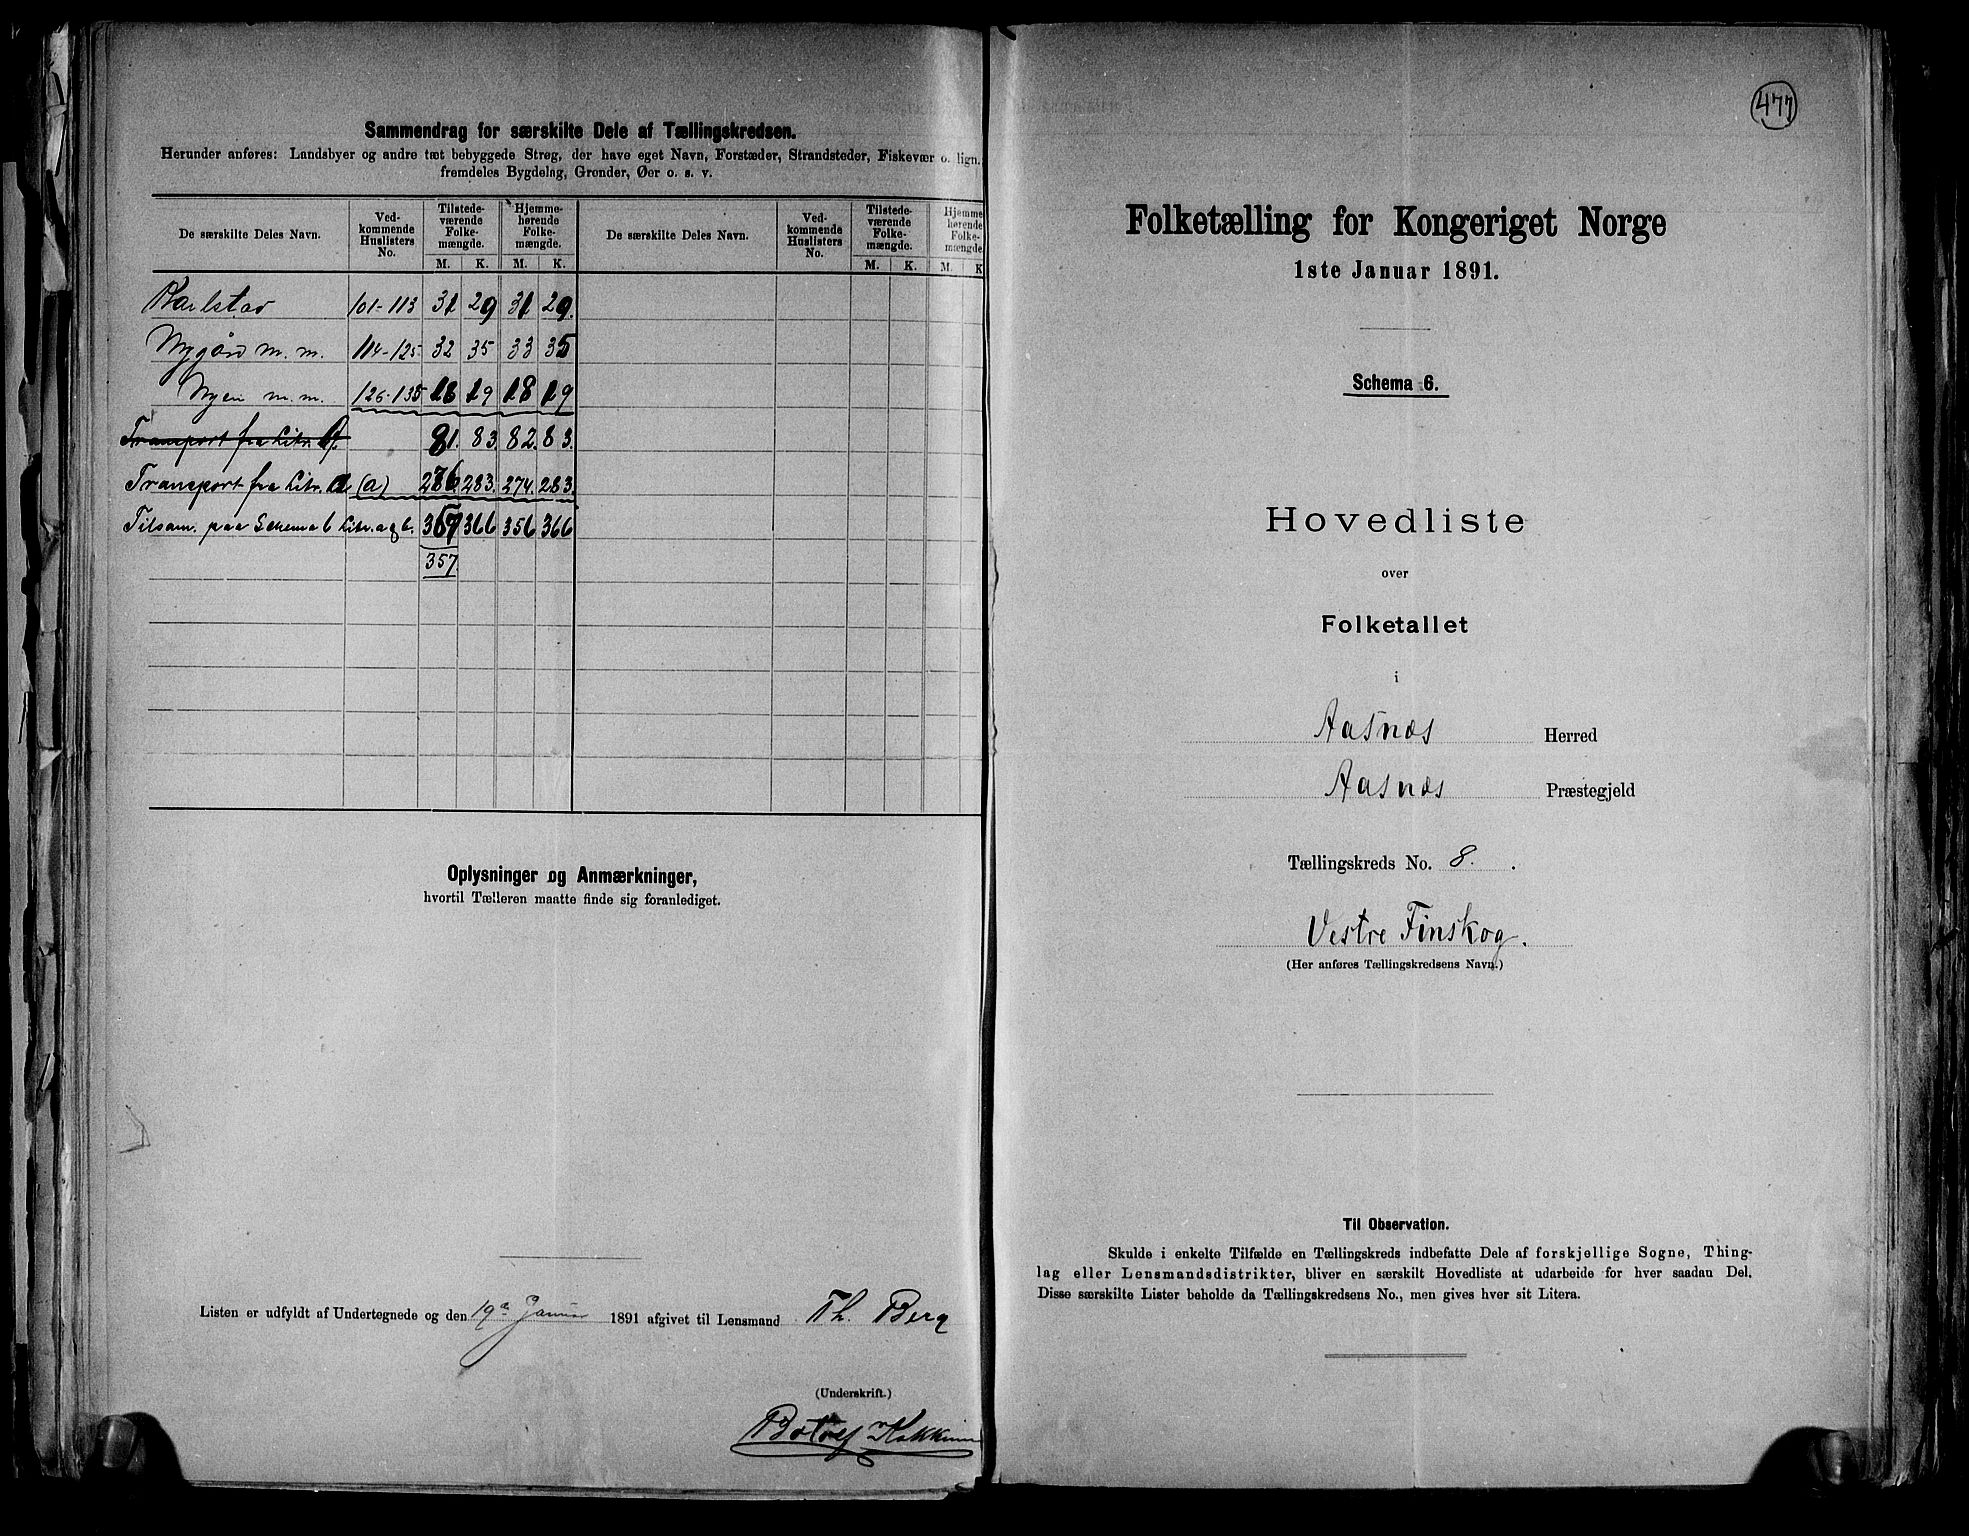 Sammendrag for særskilte Dele af Tællingskredsen.
Herunder anføres: Landsbyer og andre tæt bebyggede Strøg, der have eget Navn, Forstæder, Strandsteder, Fiskevær o. lign.
fremdeles Bygdelag, Grender, Øer o. s. v.
De særskilte Deles Navn. Ved-kommende Huslisters No. Tilstede-værende Folke-mængde. Hjemme-hørende Folke-mængde. De særskilte Deles Navn. Ved-kommende Huslisters No. Tilstede-værende Folke-mængde. Hjemme-hørende Folke-mængde.
M. K. M. K. M. K. M. K
Karlstad 101-113 31 29 31 29.
Nygård m. m. 114-125 32 35 33 35
Nyen m. m. 126-135 18 19 18 19
Transport fra Litr. 81. 83. 82. 83.
Transport fra Litr. a (a) 276 283. 274. 283.
Tilsam. paa Schema 6 Litr. a og b. 357 366 356 366
357.
Oplysninger og Anmærkninger,
hvortil Tælleren maatte finde sig foranlediget.
Listen er udfyldt af Undertegnede og den 19de Januar 1891 afgivet til Lensmand Th. Berg
(Underskrift.)
477
Folketælling for Kongeriget Norge
1ste Januar 1891.
Schema 6.
Hovedliste
over
Folketallet
i
Aasnæs Herred
Aasnæs Præstegjeld
Tællingskreds No. 8.
Vestre Finskog.
(Her anføres Tællingskredsens Navn.)
Til Observation.
Skulde i enkelte Tilfælde en Tællingskreds indbefatte Dele af forskjellige Sogne, Thing-
lag eller Lensmandsdistrikter, bliver en særskilt Hovedliste at udarbeide for hver saadan Del.
Disse særskilte Lister beholde da Tællingskredsens No., men gives hver sit Litera.